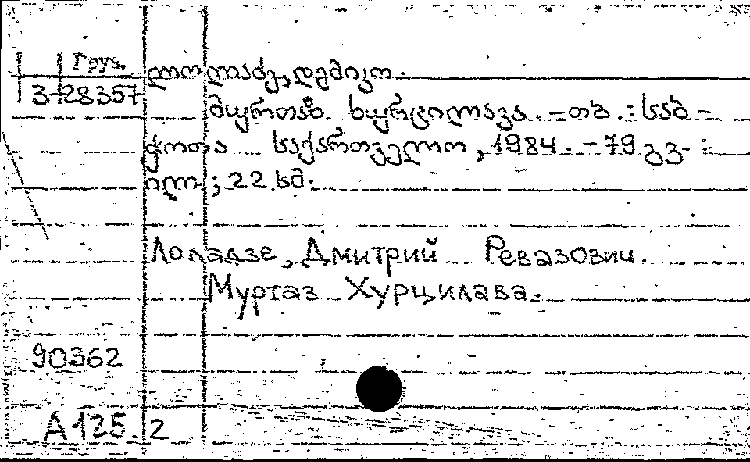 Груз.
3-28357
ლოლაძე, დემიკო.
მურთაზ ხურცილავა. – თბ. : საბ-
ჭოთა საქართველო, 1984. – 79 გვ. :
ილ ; 22 სმ.
Лоладзе, Дмитрий Ревазович.
Муртаз Хурцилава.
90362
А 125 2